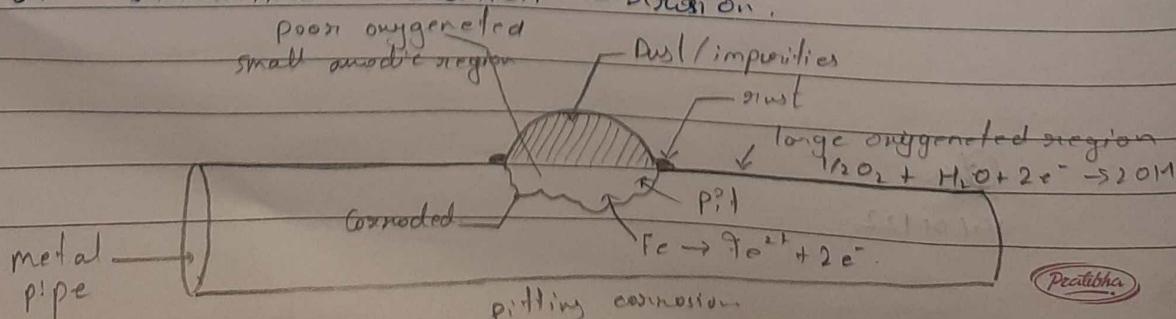 poor oxygeneted
small anodic region
Dust/impurities
rust
large oxygeneted region
1/2O2 + H2O + 2e- → 2OH
pit
Corroded
Fe → Fe2+ + 2e-.
metal
pipe
pitting corrosion
Pratibha